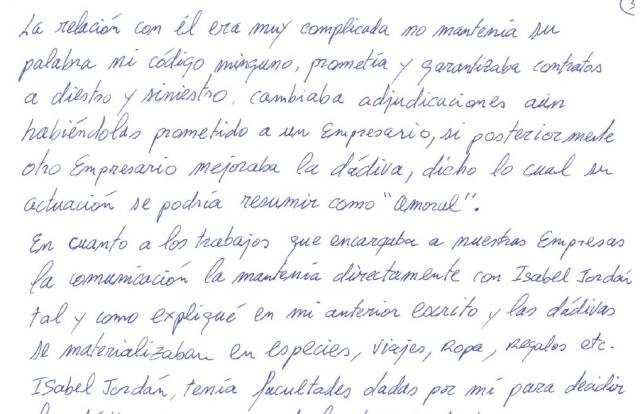 3
La relación con él era muy complicada no mantenía su
palabra ni código ninguno, prometía y garantizaba contratos
a diestro y siniestro, cambiaba adjudicaciones aún
habiéndolas prometido a un Empresario, si posteriormente
otro Empresario mejoraba la dádiva, dicho lo cual su
actuación se podría resumir como "amoral".
En cuanto a los trabajos que encargaba a nuestras Empresas
la comunicación la mantenía directamente con Isabel Jordán
tal y como expliqué en mi anterior escrito y las dádivas
se materializaban en especies, viajes, ropa, regalos etc.
Isabel Jordán, tenía facultades dadas por mí para decidir